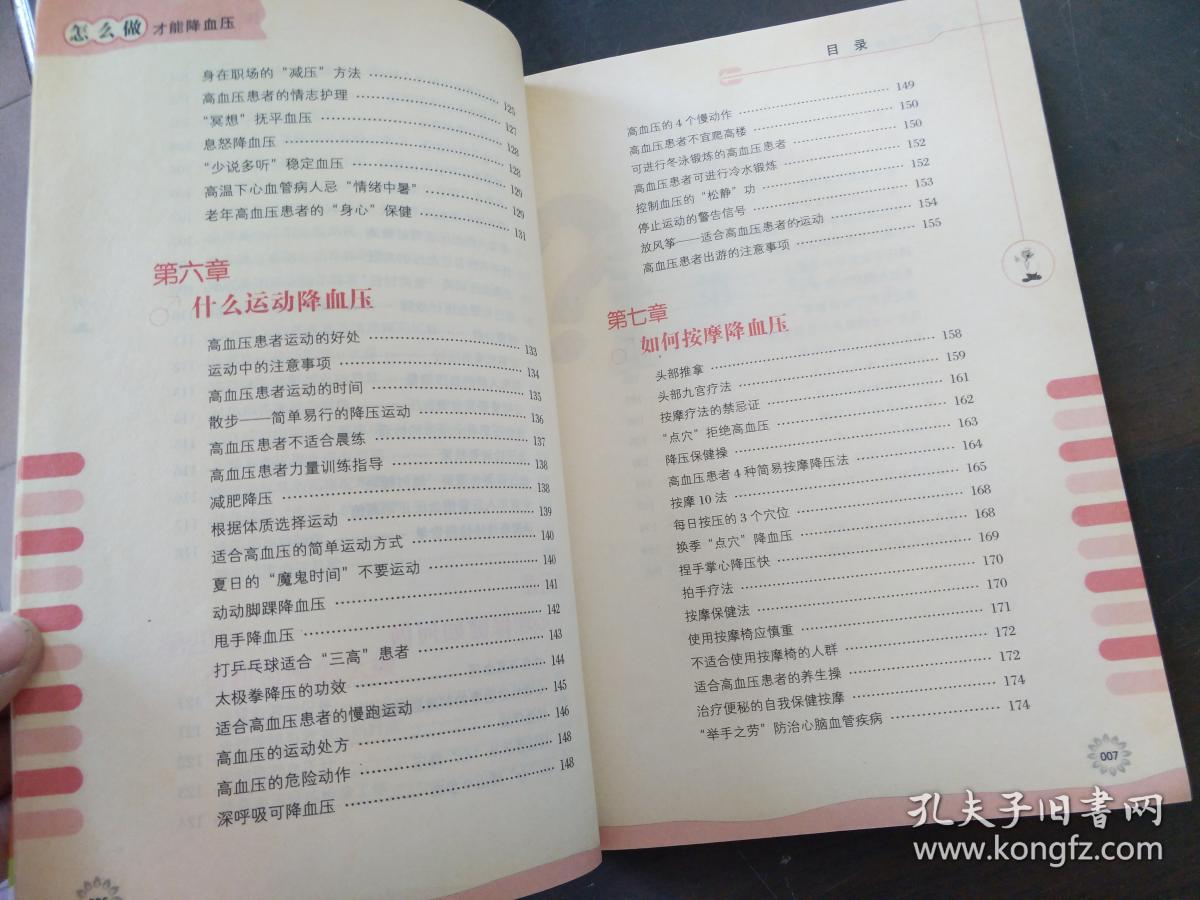 怎么做 才能降血压
身在职场的“减压”方法 125
高血压患者的情志护理 127
“冥想”抚平血压 128
息怒降血压 128
“少说多听”稳定血压 129
高温下心血管病人忌“情绪中暑” 129
老年高血压患者的“身心”保健 131
第六章
什么运动降血压
高血压患者运动的好处 133
运动中的注意事项 134
高血压患者运动的时间 135
散步——简单易行的降压运动 136
高血压患者不适合晨练 137
高血压患者力量训练指导 138
减肥降压 138
根据体质选择运动 139
适合高血压的简单运动方式 140
夏日的“魔鬼时间”不要运动 140
动动脚踝降血压 141
甩手降血压 142
打乒乓球适合“三高”患者 143
太极拳降压的功效 144
适合高血压患者的慢跑运动 145
高血压的运动处方 146
高血压的危险动作 148
深呼吸可降血压 148
目 录
高血压的4个慢动作 149
高血压患者不宜爬高楼 150
可进行冬泳锻炼的高血压患者 150
高血压患者可进行冷水锻炼 152
控制血压的“松静”功 152
停止运动的警告信号 153
放风筝——适合高血压患者的运动 154
高血压患者出游的注意事项 155
第七章
如何按摩降血压
头部推拿 158
头部九宫疗法 159
按摩疗法的禁忌证 161
“点穴”拒绝高血压 162
降压保健操 163
高血压患者4种简易按摩降压法 164
按摩10法 165
每日按压的3个穴位 168
换季“点穴”降血压 168
捏手掌心降压快 169
拍手疗法 170
按摩保健法 170
使用按摩椅应慎重 171
不适合使用按摩椅的人群 172
适合高血压患者的养生操 172
治疗便秘的自我保健按摩 174
“举手之劳”防治心脑血管疾病 174
007
孔夫子旧书网
www.kongfz.com